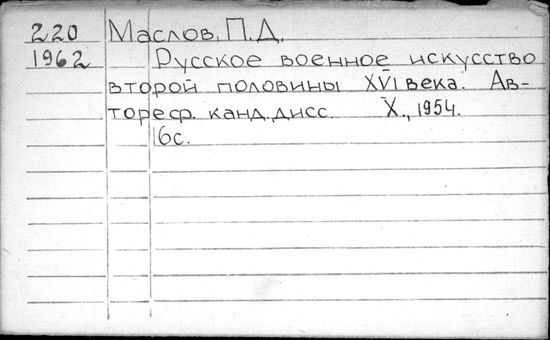 220 Маслов, П.Д.
1962 Русское военное искусство
второй половины XVI века. Ав-
тореф. канд. дисс. X., 1954.
16с.